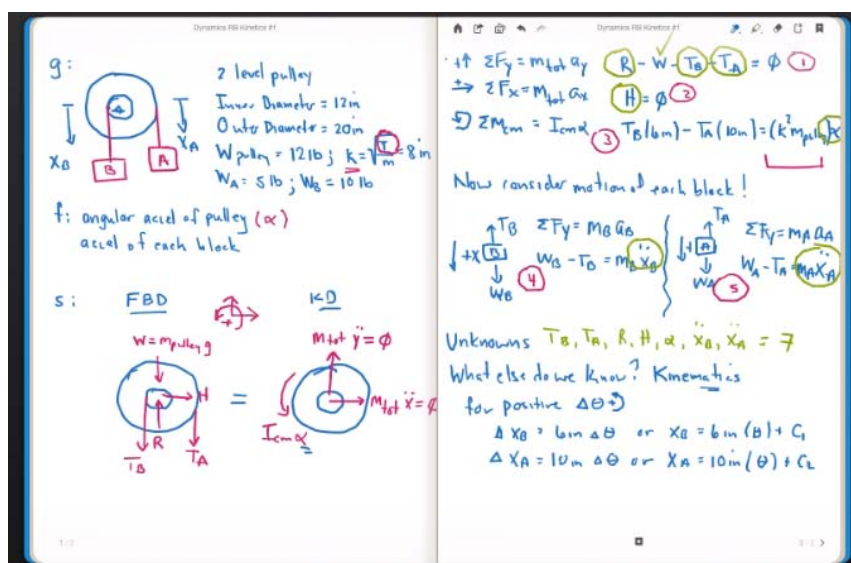 Dynamics RB Kinetics #1
g:
2 level pulley
Inner Diameter = 12in
Outer Diameter = 20in
W pulley = 12 lb ; k = √I/m = 8in
WA = 5 lb ; WB = 10 lb
XB
XA
B
A
f: angular accel of pulley (α)
accel of each block
s: FBD KD
+
W = mpulley g
H
R
TB
TA
=
mtot ÿ = φ
mtot ẍ = φ
Icm α
1/2
Dynamics RB Kinetics #1
+↑ ΣFy = mtot ay R - W - TB - TA = φ ①
+→ ΣFx = mtot ax H = φ ②
↺ ΣMcm = Icm α ③ TB(6in) - TA(10in) = (k² mpulley)α
Now consider motion of each block!
↑TB ΣFy = mB aB
↓+X B WB - TB = mB ẍB
↓WB ④
↑TA ΣFy = mA aA
↓+ A WA - TA = mA ẍA
WA ⑤
Unknowns TB, TA, R, H, α, ẍB, ẍA = 7
What else do we know? Kinematics
for positive Δθ ↺
Δ XB = 6in Δθ or XB = 6in (θ) + C1
Δ XA = 10in Δθ or XA = 10in (θ) + C2